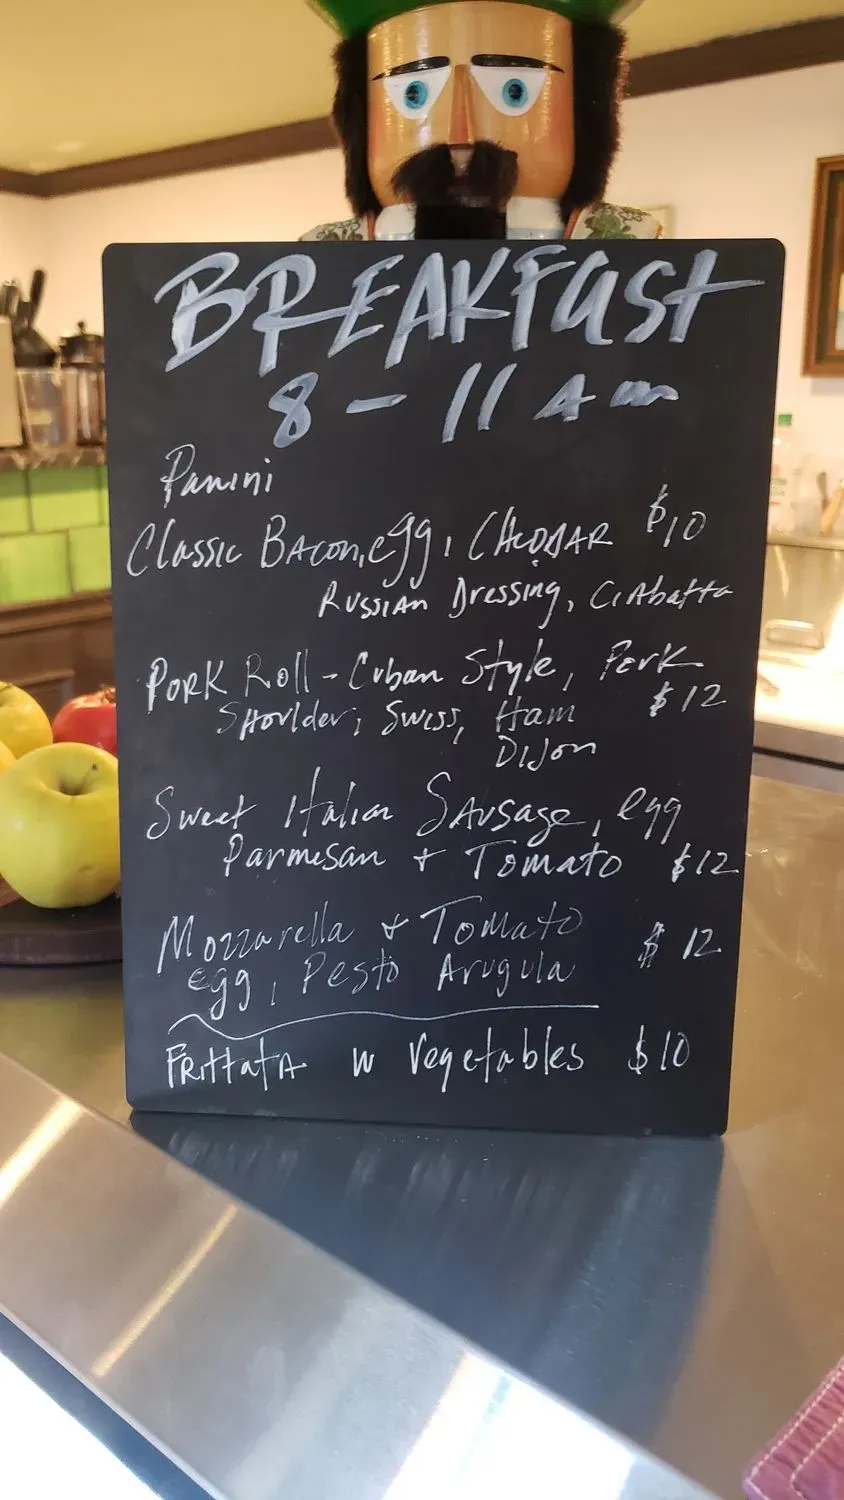 BREAKFast
8 - 11 Am
Panini
Classic Bacon, egg, CHeDDAR $10
Russian Dressing, Ciabatta
Pork Roll - Cuban Style, Pork
Shoulder, Swiss, Ham $12
Dijon
Sweet Italian Sausage, egg
Parmesan + Tomato $12
Mozzarella + Tomato
egg, Pesto Arugula $12
FRittatA w Vegetables $10